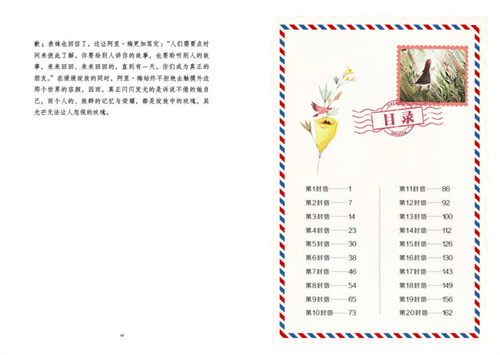 歉；表妹也回信了，这让阿里·梅更加笃定：“人们需要点时
间来彼此了解，你要给别人讲你的故事，也要聆听别人的故
事，来来回回、来来回回的，直到有一天，你们成为真正的
朋友。”在缓缓绽放的同时，阿里·梅始终不拒绝去触摸外边
那个世界的容颜，因而，真正闪闪发光的是诉说不倦的她自
己。而个人的、族群的记忆与荣耀，都是绽放中的玫瑰，其
光芒无法让人忽视的玫瑰。
vi
目录
第1封信——1
第2封信——7
第3封信——14
第4封信——23
第5封信——30
第6封信——38
第7封信——46
第8封信——54
第9封信——65
第10封信——73
第11封信——86
第12封信——92
第13封信——100
第14封信——112
第15封信——126
第16封信——130
第17封信——143
第18封信——149
第19封信——156
第20封信——162